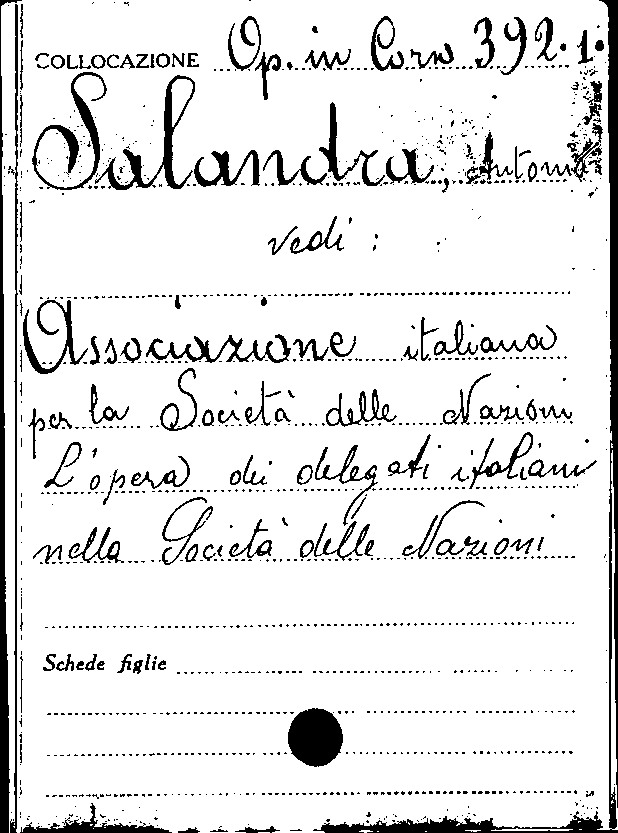 COLLOCAZIONE Op. in Corso 392.1.
Salandra, Antonio
vedi :
Associazione italiana
per la Società delle Nazioni
L'opera dei delegati italiani
nella Società delle Nazioni
Schede figlie